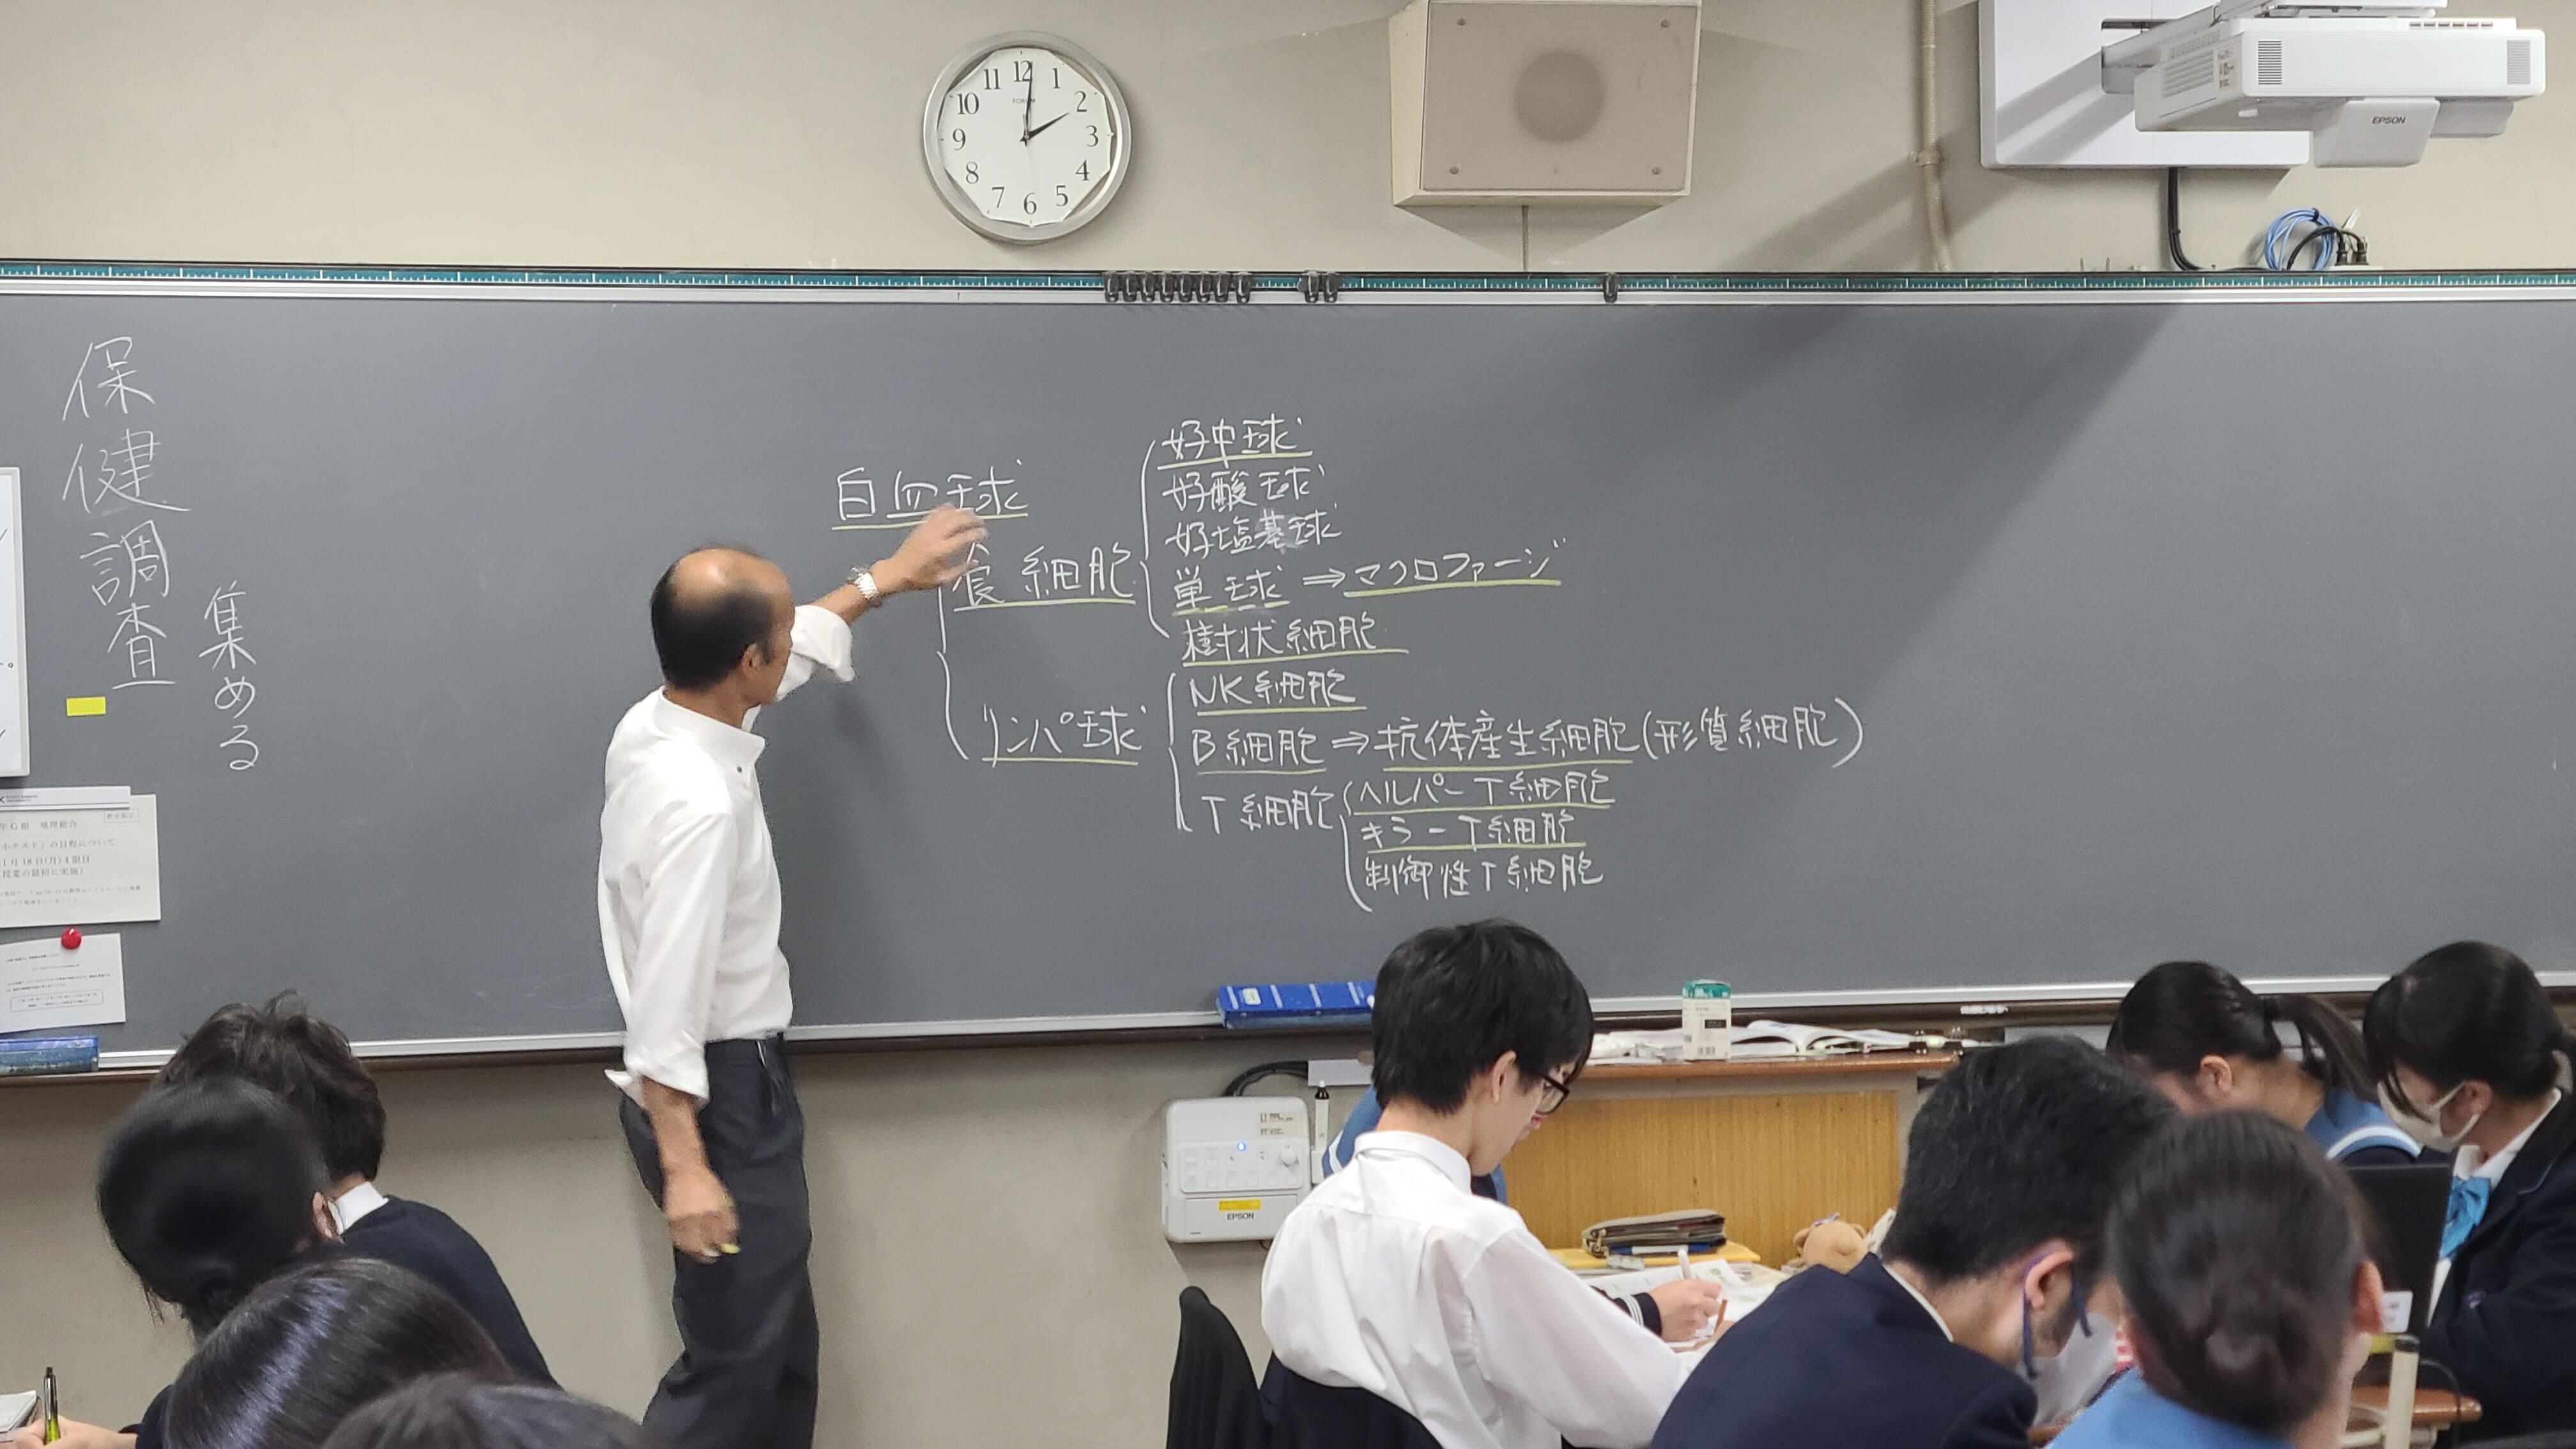 11 12 1
10 2
9 3
8 4
7 6 5
EPSON
保健調査
集める
白血球
食細胞
好中球
好酸球
好塩基球
単球⇒マクロファージ
樹状細胞
リンパ球
NK細胞
B細胞⇒抗体産生細胞(形質細胞)
T細胞
ヘルパーT細胞
キラーT細胞
制御性T細胞
年G組 地理総合
小テスト」の日程について
1月18日(月)4限目
授業の最初に実施)
EPSON